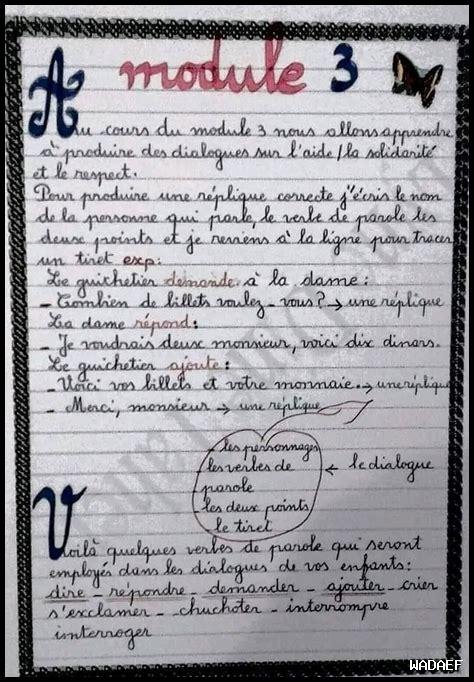 module 3
Au cours du module 3 nous allons apprendre
à produire des dialogues sur l'aide / la solidarité
et le respect.
Pour produire une réplique correcte j'écris le nom
de la personne qui parle, le verbe de parole les
deux points et je reviens à la ligne pour tracer
un tiret exp:
Le guichetier demande à la dame :
- Combien de billets voulez-vous? → une réplique
La dame répond :
- Je voudrais deux monsieur, voici dix dinars.
Le guichetier ajoute :
- Voici vos billets et votre monnaie. → une réplique
- Merci, monsieur → une réplique
les personnages
les verbes de
parole
les deux points
le tiret
← le dialogue
Voilà quelques verbes de parole qui seront
employés dans les dialogues de vos enfants:
dire - répondre - demander - ajouter - crier
s'exclamer - chuchoter - interrompre
interroger
WADAEF